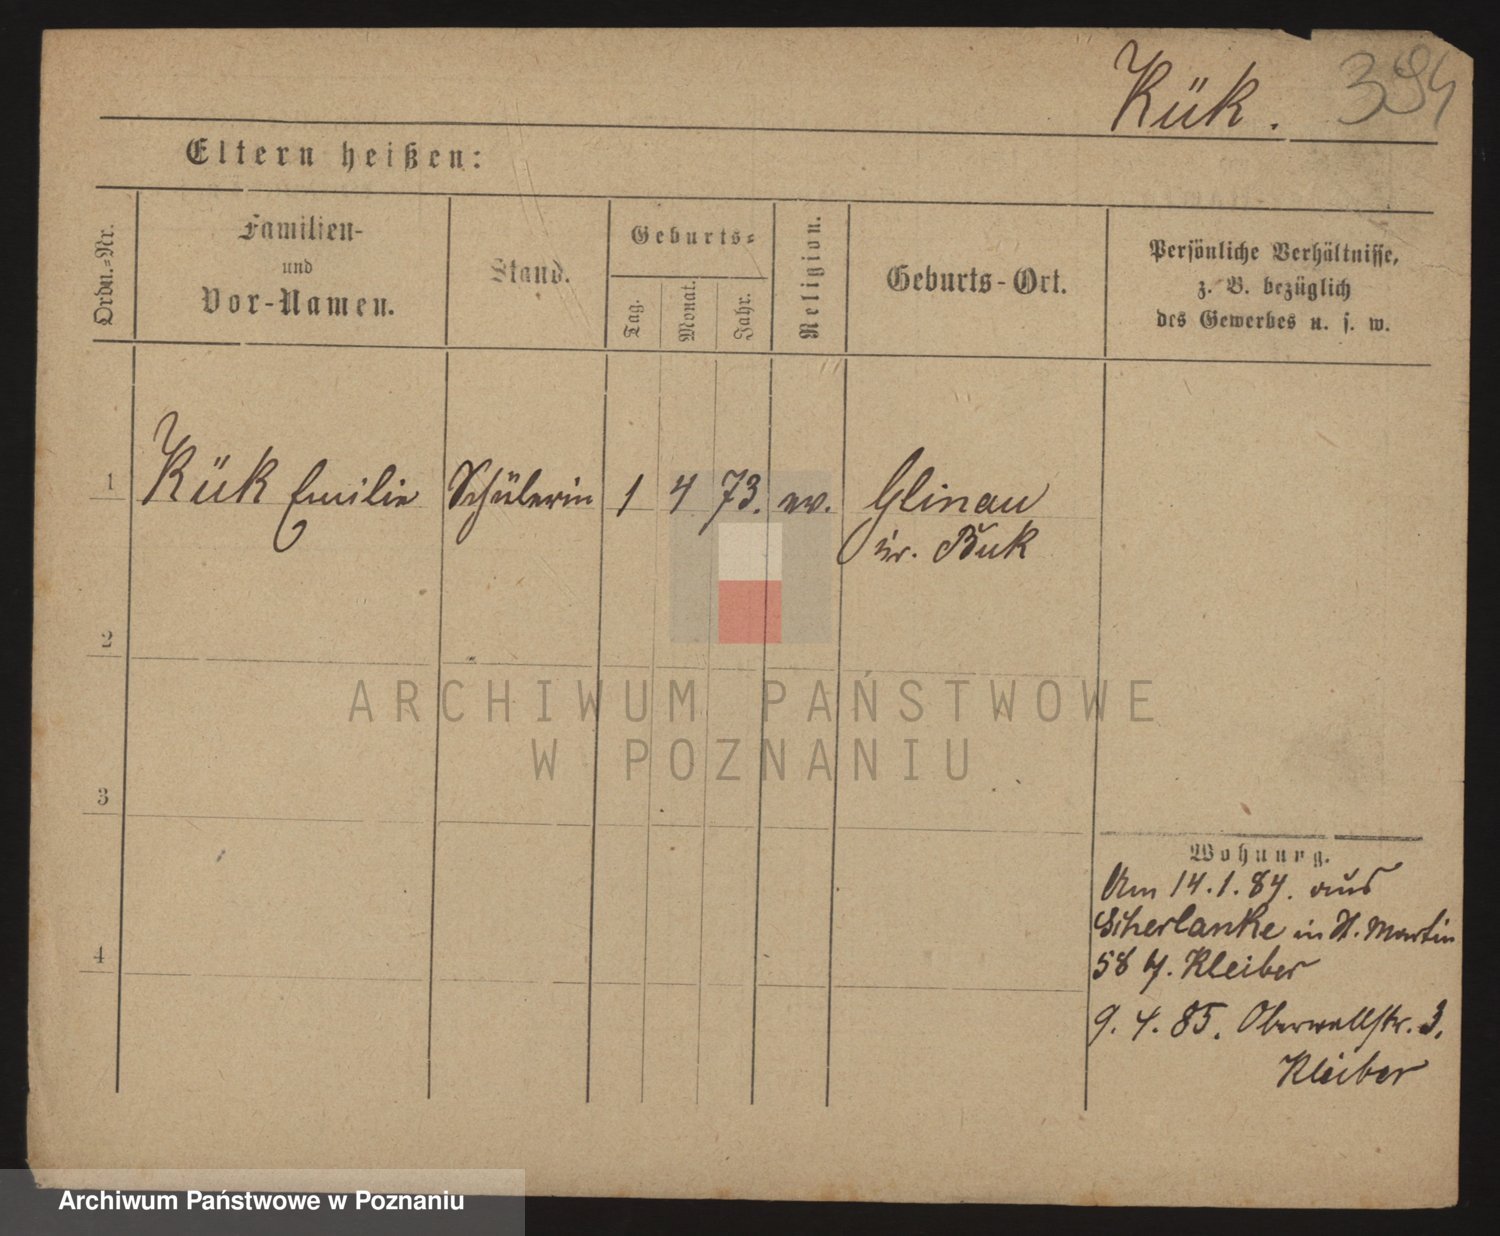 Kük. 394
Eltern heißen:
Ordn.-Nr.
Familien-
und
Vor-Namen.
Stand.
Geburts-
Tag.
Monat.
Jahr.
Religion.
Geburts-Ort.
Persönliche Verhältnisse,
z. B. bezüglich
des Gewerbes u. s. w.
1 Kük Emilie Schülerin 1 4 73. ev. Glinau
Kr. Buk
2
ARCHIWUM PAŃSTWOWE
W POZNANIU
3
4
Wohnung.
Am 14.1.84. aus
Scherlanke in St. Martin
58 b. Kleiber
9. 4. 85. Oberwallstr. 3.
Kleiber
Archiwum Państwowe w Poznaniu